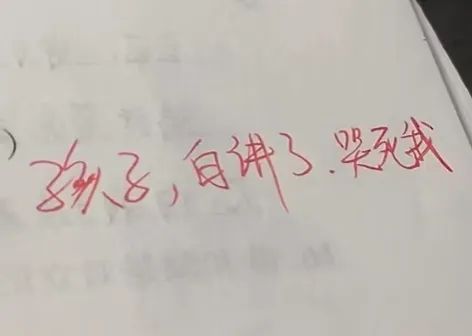 孩子，白讲了.哭死我